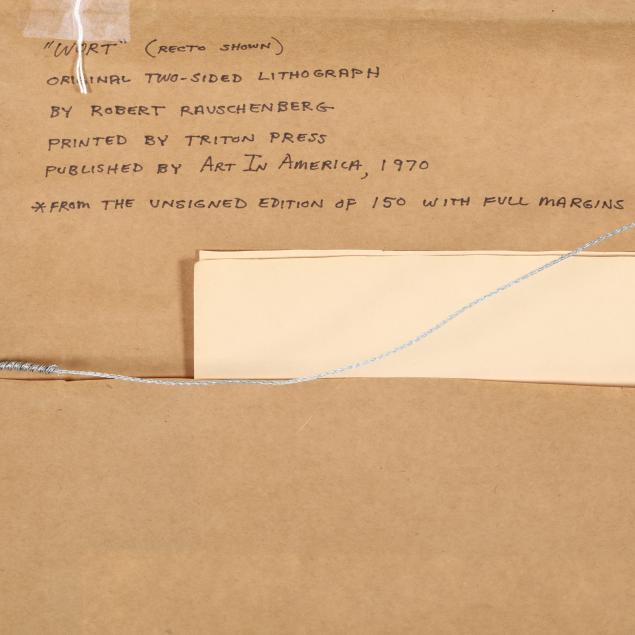 "WORT" (RECTO SHOWN)
ORIGINAL TWO-SIDED LITHOGRAPH
BY ROBERT RAUSCHENBERG
PRINTED BY TRITON PRESS
PUBLISHED BY ART IN AMERICA, 1970
*FROM THE UNSIGNED EDITION OF 150 WITH FULL MARGINS